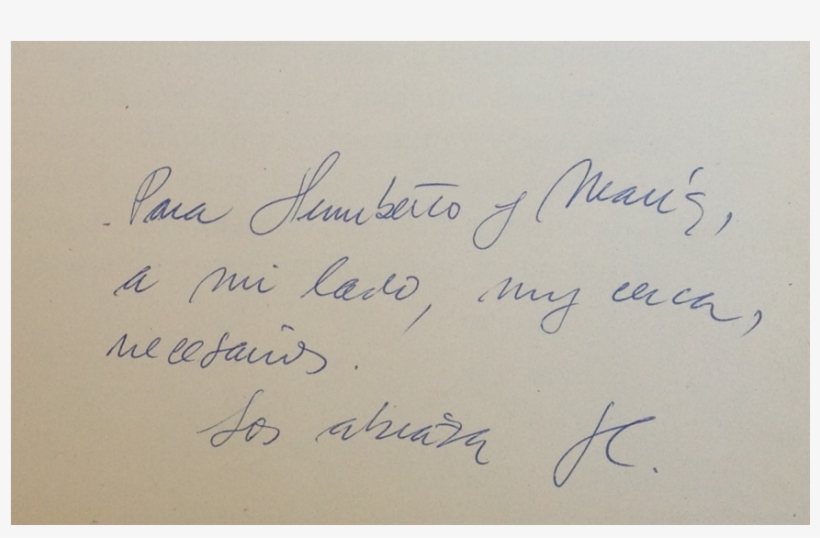 Para Humberto y María,
a mi lado, muy cerca,
necesarios.
Los abraza JC.